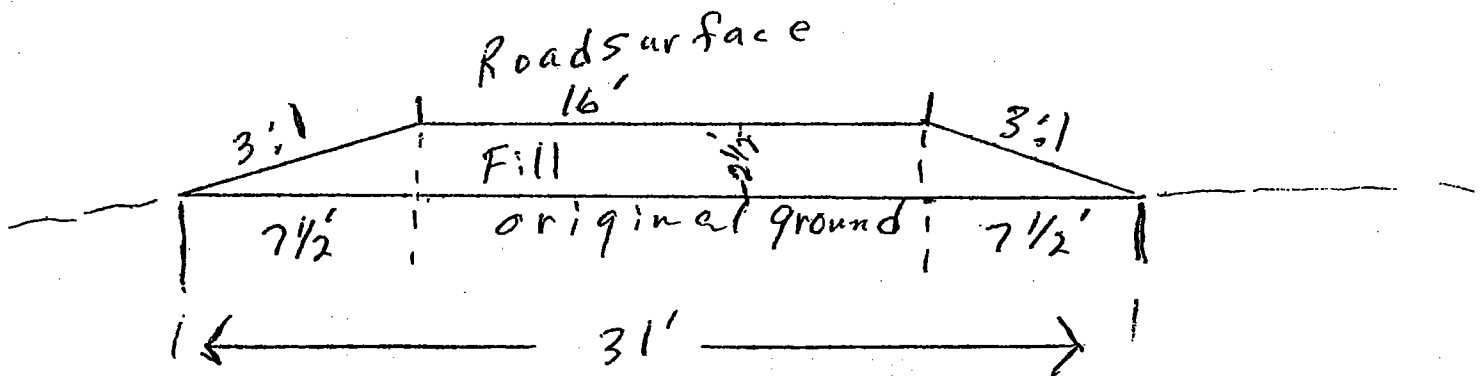 Roadsurface
16'
3:1
3:1
Fill
2½'
original ground
7½'
7½'
31'